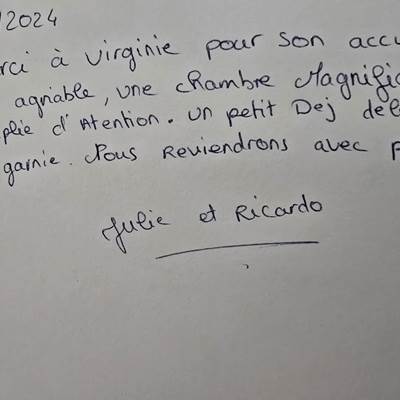 /2024
rci à Virginie pour son accu
agriable, une chambre Magnific
plie d'Atention. un petit Dej del
garnie. Nous Reviendrons avec p
Julie et Ricardo